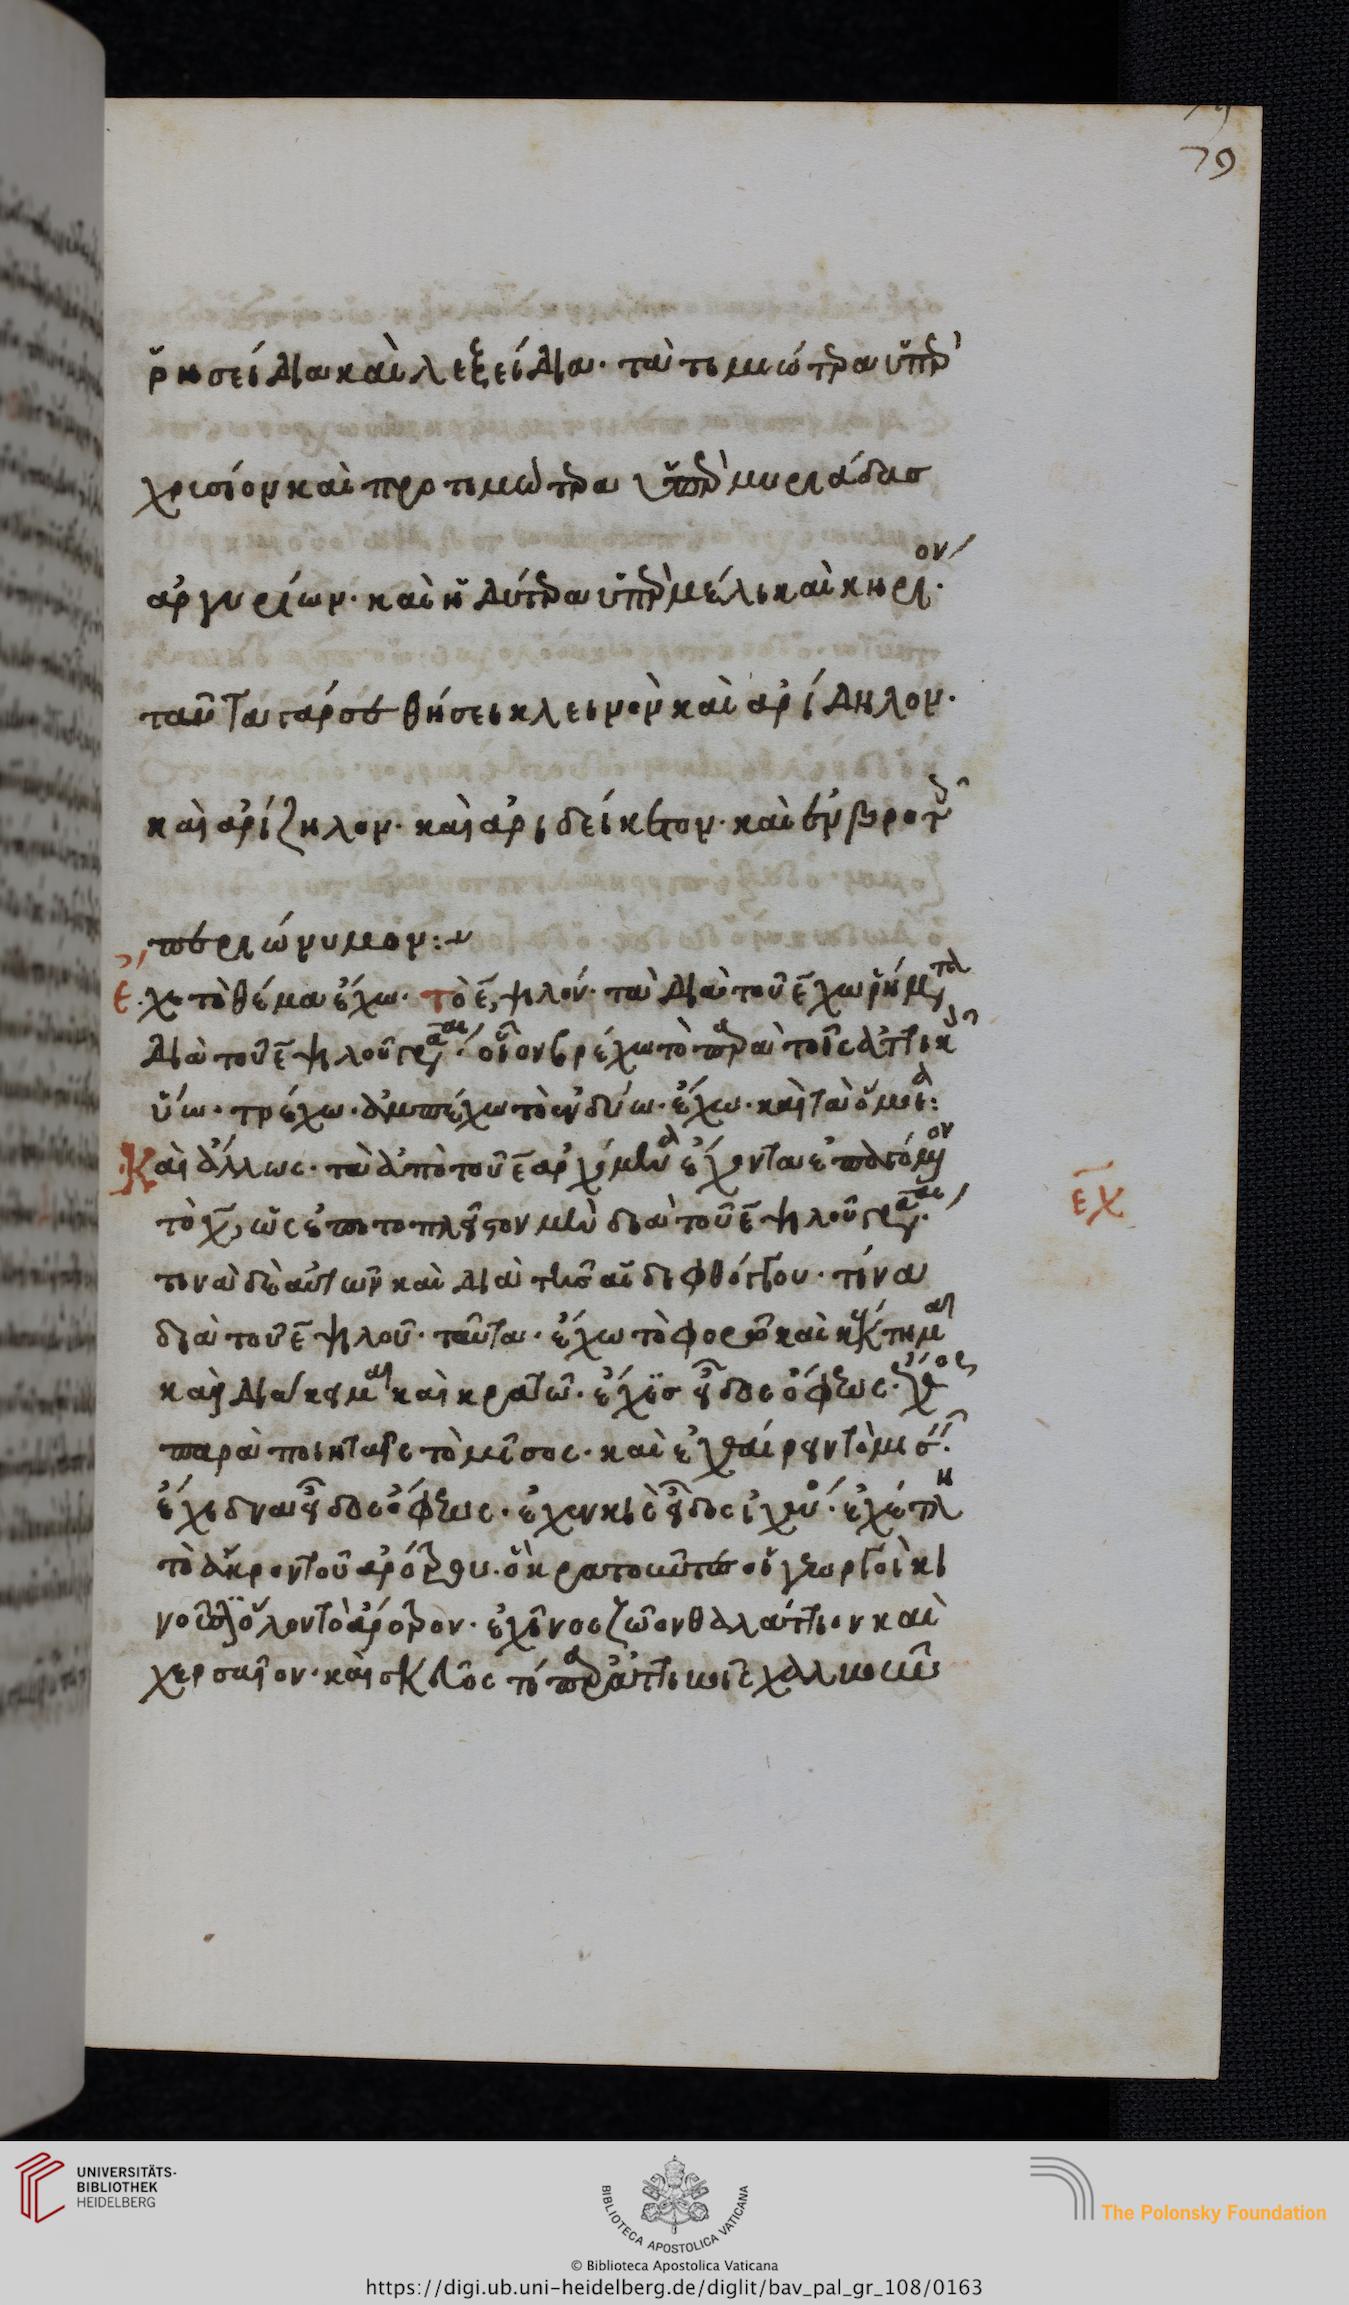 79
ῥησείδια καὶ λεξείδια· τὰ τιμιώτερα ὑπὲρ
χρυσίον καὶ προτιμώτερα ὑπὲρ μυριάδας
ἀργυρίων· καὶ ἡδύτερα ὑπὲρ μέλι καὶ κηρίον·
ταῦτα γάρ σε θήσει κλεινὸν καὶ ἀρίδηλον·
καὶ ἀρίζηλον· καὶ ἀριδείκετον· καὶ ἐν βροτοῖς
περιώνυμον:
Ε.χ. τὸ θέμα ἔχω· τὸ ε̄, ψιλόν· τὰ διὰ τοῦ ε̄χω ῥήματα
διὰ τοῦ ε̄ ψιλοῦ γράφεται· οἷον βρέχω τὸ παρὰ τοῖς ἀττικοῖς
ὕω· τρέχω· ἀμπέχω τὸ ἐνδύω· ἔχω· καὶ τὰ ὅμοια:
Καὶ ἄλλως· τὰ ἀπὸ τοῦ ε̄ ἀρχόμενα ἔχοντα ἐπαγόμενον
τὸ χ̄, ὡς ἐπὶ τὸ πλεῖστον μὲν διὰ τοῦ ε̄ ψιλοῦ γράφεται·
ε̄χ
τινὰ δὲ αὐτῶν καὶ διὰ τῆς αι διφθόγγου· τίνα
διὰ τοῦ ε̄ ψιλοῦ· ταῦτα· ἔχω τὸ φορῶ καὶ κέκτημαι
καὶ διάκειμαι καὶ κρατῶ· ἔχις εἶδος ὄφεως· ἔχθος
παρὰ ποιηταῖς τὸ μῖσος· καὶ ἐχθαίρων τὸ μισῶ·
ἔχιδνα εἶδος ὄφεως· ἐχενηὶς εἶδος ἰχθύος· ἐχέτλη
τὸ ἄκρον τοῦ ἀρότρου· ὃ κρατοῦντες οἱ γεωργοὶ κι
νοῦσιν ὅλον τὸ ἄροτρον· ἐχῖνος ζῶον θαλάττιον καὶ
χερσαῖον· καὶ σκεῦος τί παρὰ ἀττικοῖς χαλκοῦν
UNIVERSITÄTS-
BIBLIOTHEK
HEIDELBERG
BIBLIOTECA APOSTOLICA VATICANA
The Polonsky Foundation
© Biblioteca Apostolica Vaticana
https://digi.ub.uni-heidelberg.de/diglit/bav_pal_gr_108/0163